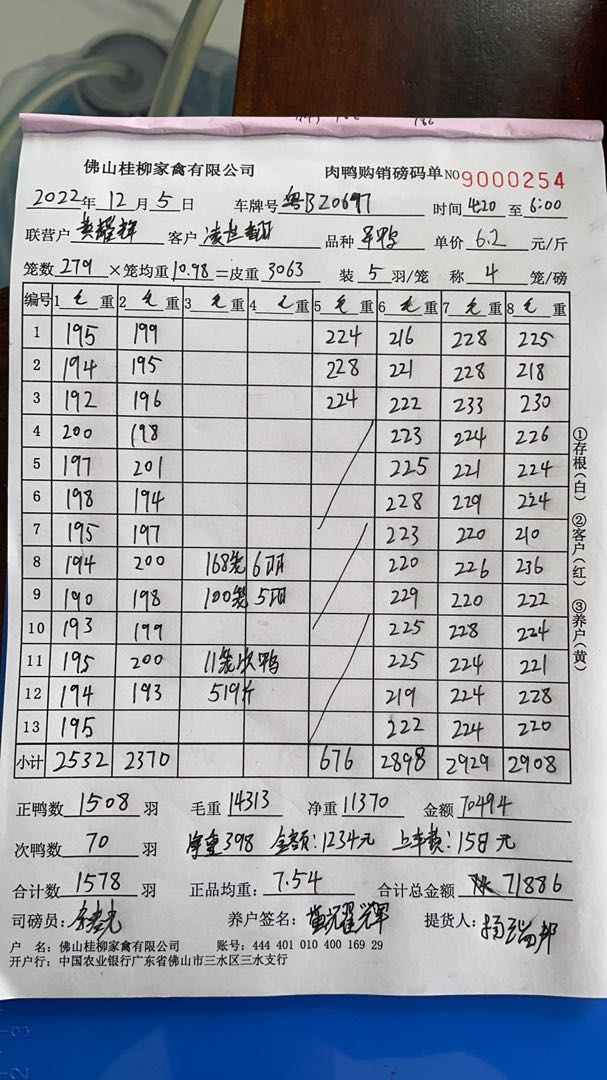 186
佛山桂柳家禽有限公司 肉鸭购销磅码单 NO 9000254
2022年 12月 5日 车牌号 粤BZ0697 时间 4:20 至 6:00
联营户 黄耀辉 客户 凌世 品种 单价 6.2 元/斤
笼数 279 ×笼均重 10.98 =皮重 3063 装 5 羽/笼 称 4 笼/磅
编号 1 毛 重 2 毛 重 3 毛 重 4 毛 重 5 毛 重 6 毛 重 7 毛 重 8 毛 重
1 195 199 224 216 228 225
2 194 195 228 221 228 218
3 192 196 224 222 233 230
4 200 198 223 224 226
5 197 201 225 221 224
6 198 194 228 229 224
7 195 197 223 220 210
8 194 200 168笼 6羽 220 226 236
9 190 198 100笼 5羽 229 220 222
10 193 199 225 228 224
11 195 200 11笼次鸭 225 224 221
12 194 193 519斤 219 224 228
13 195 222 224 220
小计 2532 2370 676 2898 2929 2908
正鸭数 1508 羽 毛重 14313 净重 11370 金额 70494
次鸭数 70 羽 净重398 金额:1234元 上车费:158元
合计数 1578 羽 正品均重: 7.54 合计总金额 71886
司磅员: 养户签名: 黄耀辉 提货人: 杨瑞邦
户 名: 佛山桂柳家禽有限公司 账号: 444 401 010 400 169 29
开户行: 中国农业银行广东省佛山市三水区三水支行
①存根(白) ②客户(红) ③养户(黄)